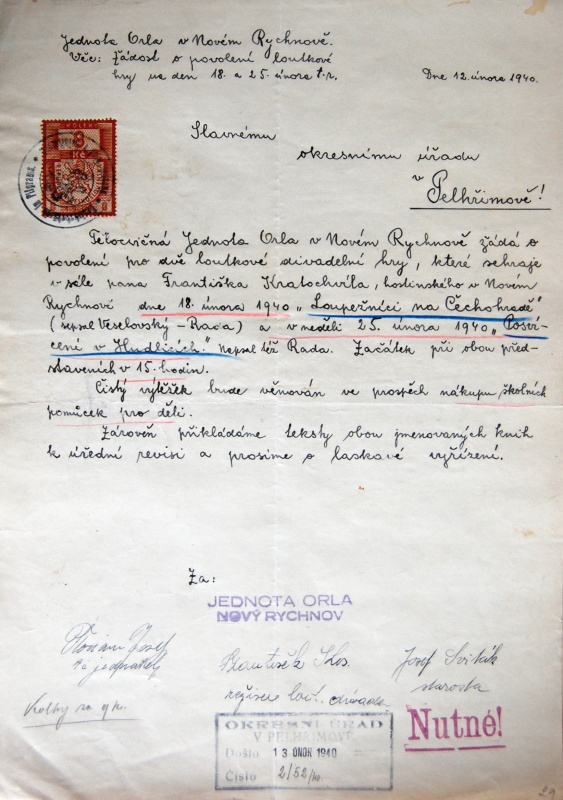 Jednota Orla v Novém Rychnově.
Věc: Žádost o povolení loutkové
hry na den 18. a 25. února t.r.
Dne 12. února 1940.
KOLEK
8
Kč
Slavnému
okresnímu úřadu
v Pelhřimově!
Tělocvičná Jednota Orla v Novém Rychnově žádá o
povolení pro dvě loutkové divadelní hry, které sehraje
v sále pana Františka Kratochvíla, hostinského v Novém
Rychnově dne 18. února 1940 „Loupežníci na Čechohradě"
(sepsal Veselovský - Rada) a v neděli 25. února 1940 „Posví-
cení v Hudlicích." napsal též Rada. Začátek při obou před-
staveních v 15. hodin.
Čistý výtěžek bude věnován ve prospěch nákupu školních
pomůcek pro děti.
Zároveň přikládáme teksty obou jmenovaných knih
k úřední revisi a prosíme o laskavé vyřízení.
Za:
JEDNOTA ORLA
NOVÝ RYCHNOV
Josef
jednatel
František
režisér louť. divadla
Josef Sviták
starosta
Nutné!
OKRESNÍ ÚŘAD
V PELHŘIMOVĚ
Došlo 13 ÚNOR 1940
Číslo 2/52/
29